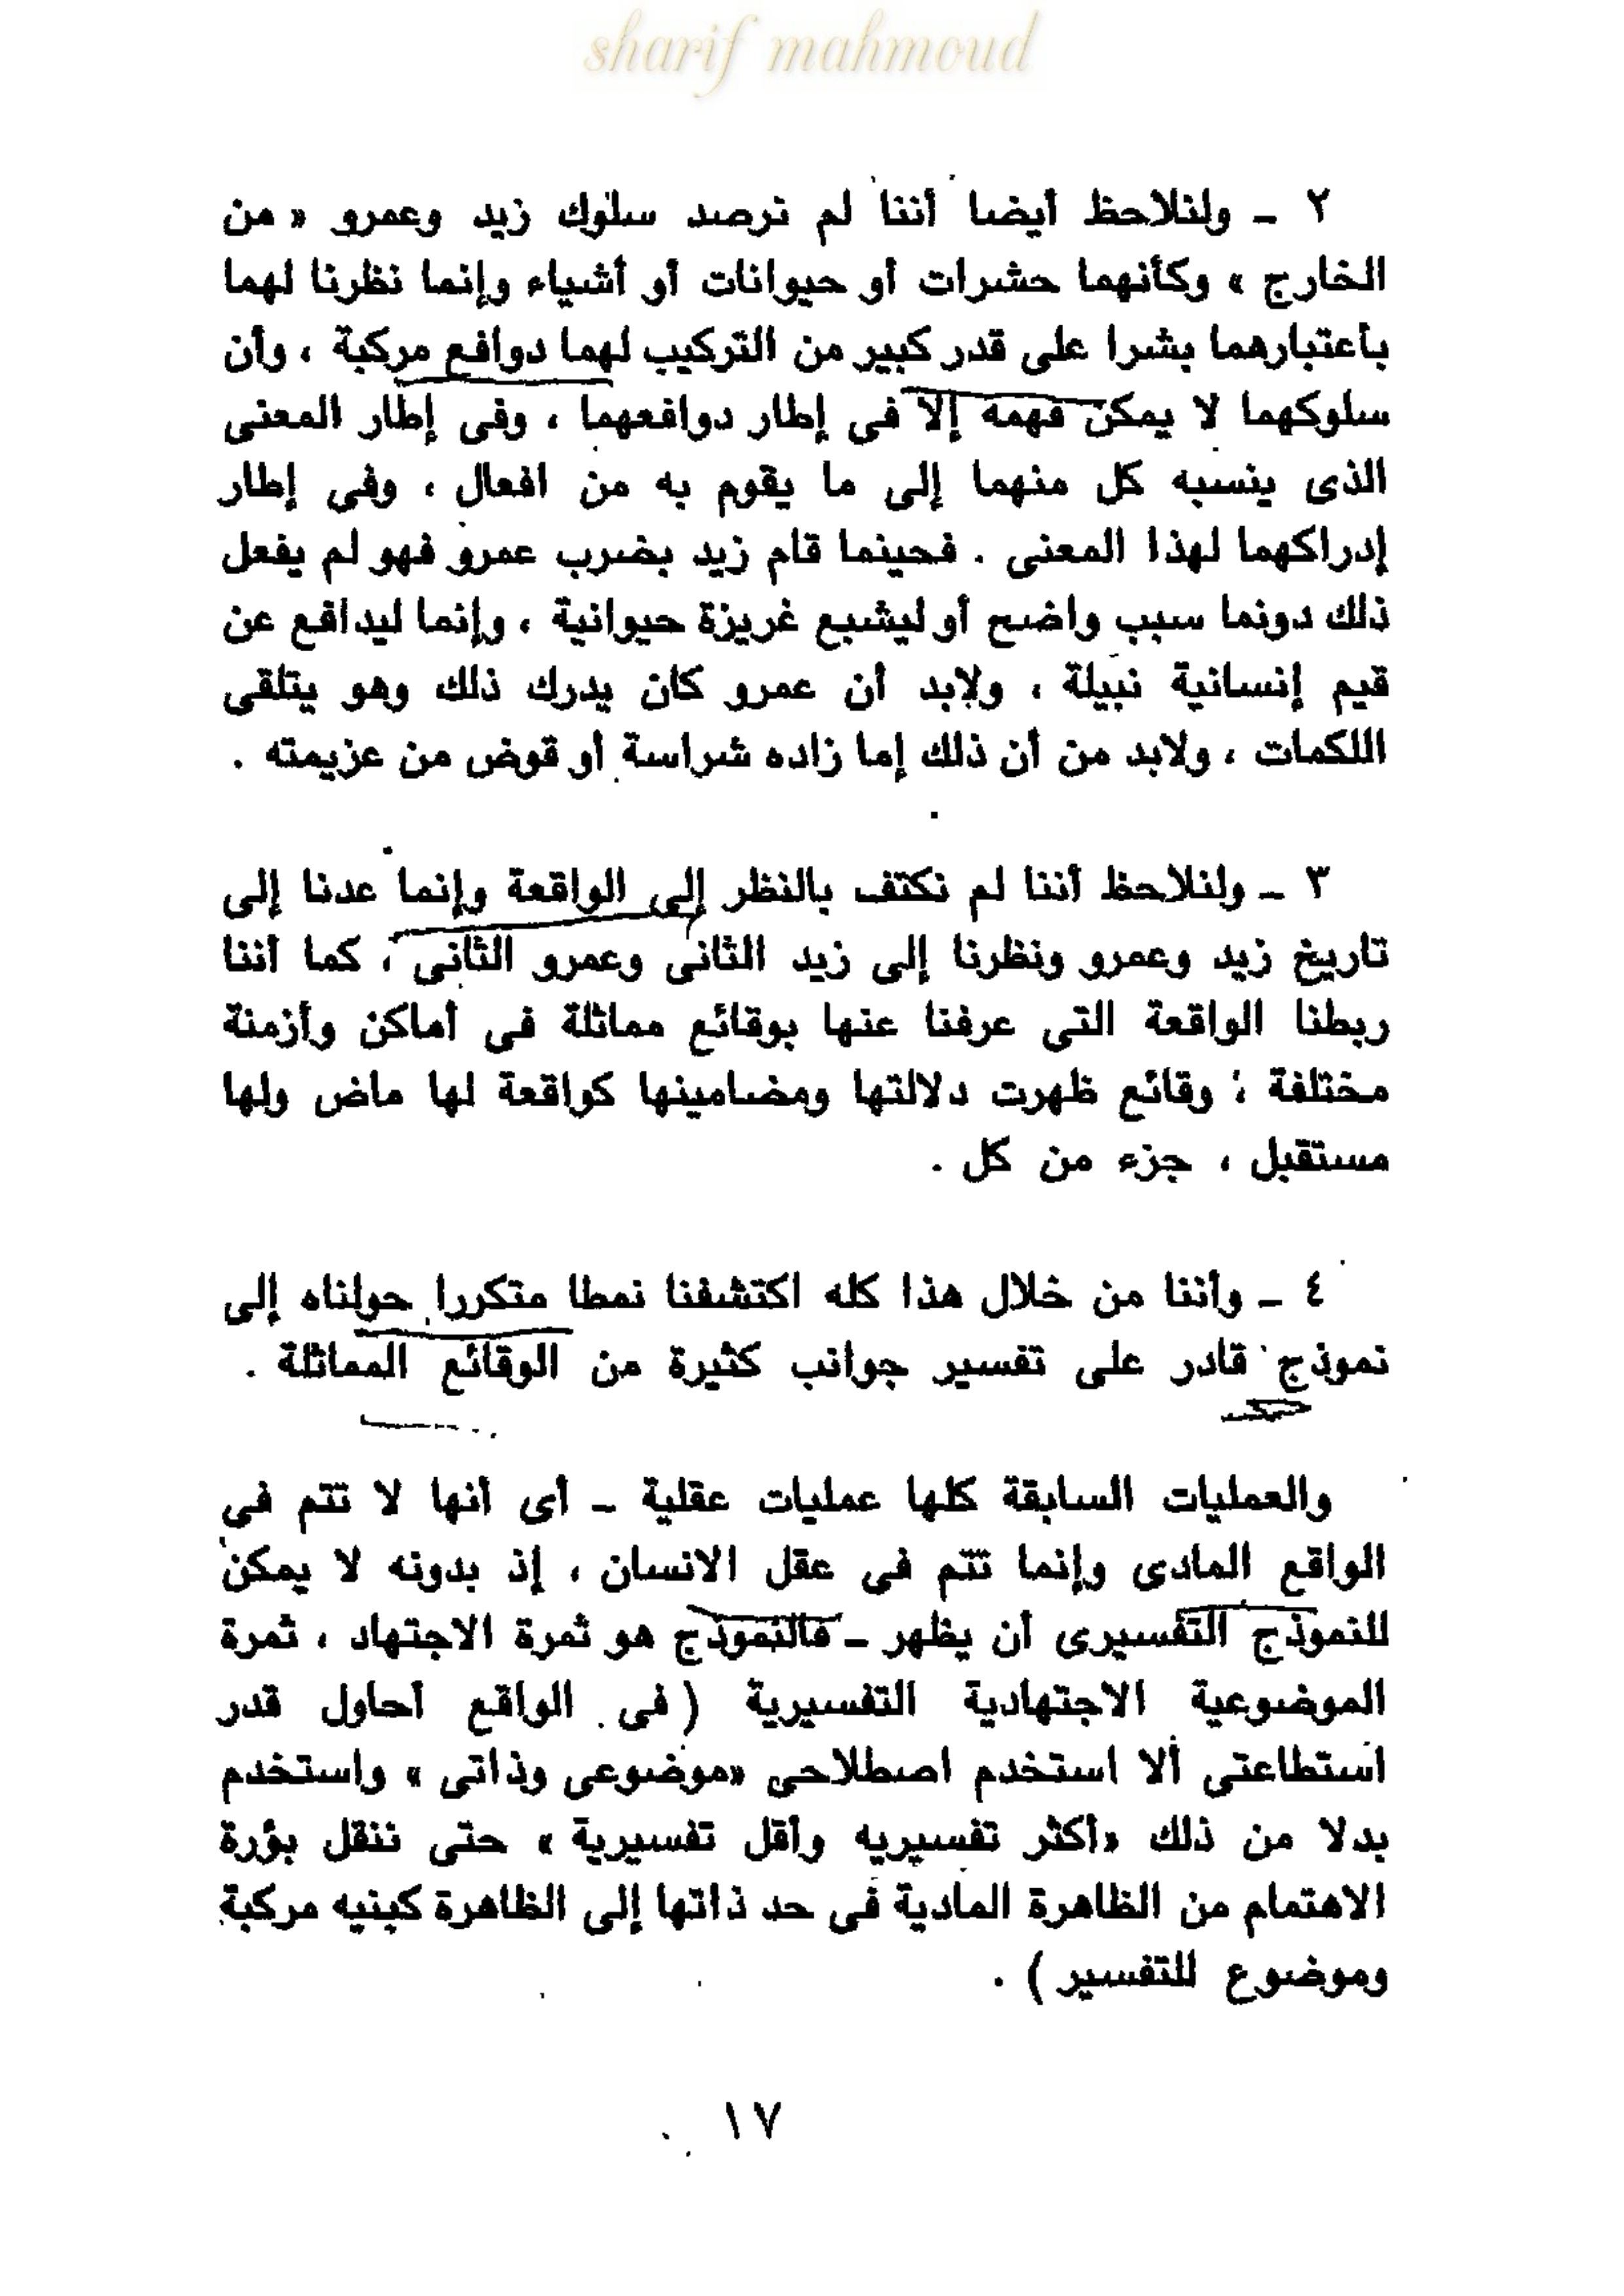 sharif mahmoud
٢ ـ ولنلاحظ أيضا أننا لم نرصد سلوك زيد وعمرو « من
الخارج » وكأنهما حشرات أو حيوانات أو أشياء وإنما نظرنا لهما
بأعتبارهما بشرا على قدر كبير من التركيب لهما دوافع مركبة ، وأن
سلوكهما لا يمكن فهمه إلا فى إطار دوافعهما ، وفى إطار المعنى
الذى ينسبه كل منهما إلى ما يقوم به من افعال ، وفى إطار
إدراكهما لهذا المعنى . فحينما قام زيد بضرب عمرو فهو لم يفعل
ذلك دونما سبب واضح أو ليشبع غريزة حيوانية ، وإنما ليدافع عن
قيم إنسانية نبيلة ، ولابد أن عمرو كان يدرك ذلك وهو يتلقى
اللكمات ، ولابد من أن ذلك إما زاده شراسة أو قوض من عزيمته .
٣ ـ ولنلاحظ أننا لم نكتف بالنظر إلى الواقعة وإنما عدنا إلى
تاريخ زيد وعمرو ونظرنا إلى زيد الثانى وعمرو الثانى ، كما أننا
ربطنا الواقعة التى عرفنا عنها بوقائع مماثلة فى أماكن وأزمنة
مختلفة ؛ وقائع ظهرت دلالتها ومضامينها كواقعة لها ماض ولها
مستقبل ، جزء من كل .
٤ ـ وأننا من خلال هذا كله اكتشفنا نمطا متكررا حولناه إلى
نموذج قادر على تفسير جوانب كثيرة من الوقائع المماثلة .
والعمليات السابقة كلها عمليات عقلية ـ أى أنها لا تتم فى
الواقع المادى وإنما تتم فى عقل الانسان ، إذ بدونه لا يمكن
للنموذج التفسيرى أن يظهر ـ فالنموذج هو ثمرة الاجتهاد ، ثمرة
الموضوعية الاجتهادية التفسيرية ( فى الواقع أحاول قدر
استطاعتى ألا استخدم اصطلاحى «موضوعى وذاتى » واستخدم
بدلا من ذلك «أكثر تفسيريه وأقل تفسيرية » حتى ننقل بؤرة
الاهتمام من الظاهرة المادية فى حد ذاتها إلى الظاهرة كبنيه مركبة
وموضوع للتفسير ) .
١٧